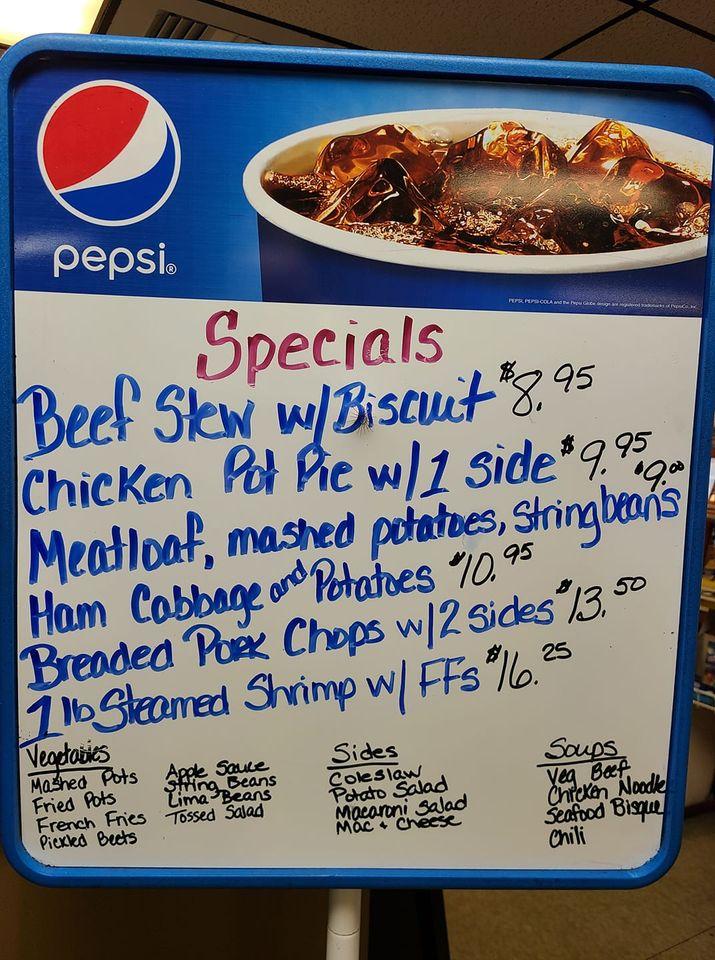 pepsi®
PEPSI, PEPSI-COLA and the Pepsi Globe design are registered trademarks of PepsiCo, Inc.
Specials
Beef Stew w/Biscuit $8.95
Chicken Pot Pie w/1 side $9.95
Meatloaf, mashed potatoes, stringbeans $9.00
Ham Cabbage and Potatoes $10.95
Breaded Pork Chops w/2 sides $13.50
1 lb Steamed Shrimp w/ FFs $16.25
Vegetables
Mashed Pots
Fried Pots
French Fries
Pickled Beets
Apple Sauce
String Beans
Lima Beans
Tossed Salad
Sides
Coleslaw
Potato Salad
Macaroni Salad
Mac + Cheese
Soups
Veg Beef
Chicken Noodle
Seafood Bisque
Chili